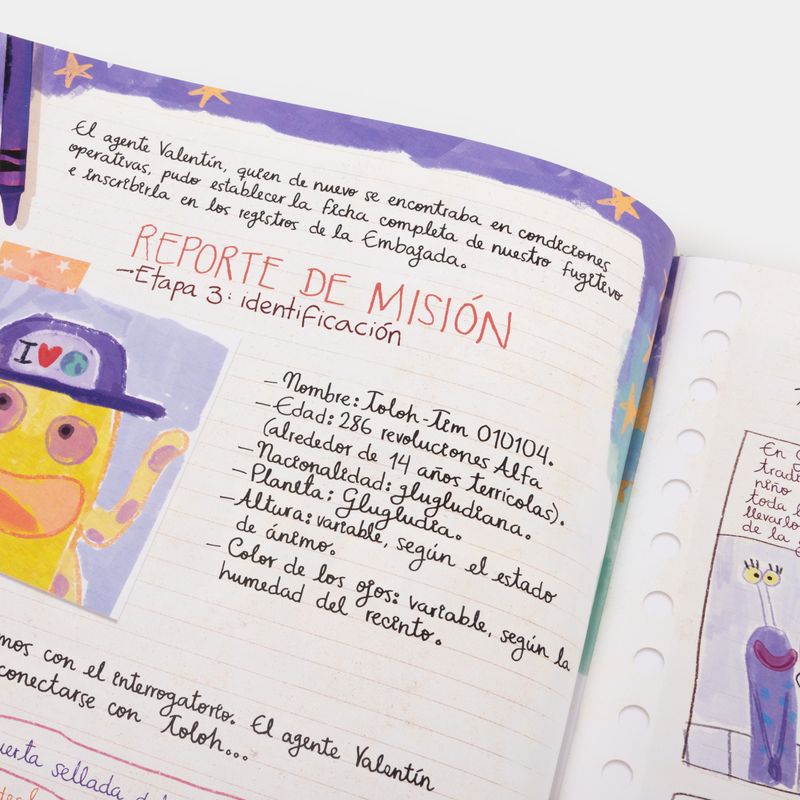 El agente Valentín, quien de nuevo se encontraba en condiciones
operativas, pudo establecer la ficha completa de nuestro fugitivo
e inscribirla en los registros de la Embajada.
REPORTE DE MISIÓN
—Etapa 3: identificación
I ♥
— Nombre: Toloh-Tim 010104.
— Edad: 286 revoluciones Alfa
(alrededor de 14 años terrícolas).
— Nacionalidad: glugludiana.
— Planeta: Glugludia.
— Altura: variable, según el estado
de ánimo.
— Color de los ojos: variable, según la
humedad del recinto.
mos con el interrogatorio. El agente Valentín
conectarse con Toloh...
sellada
En
niño
toda
de la